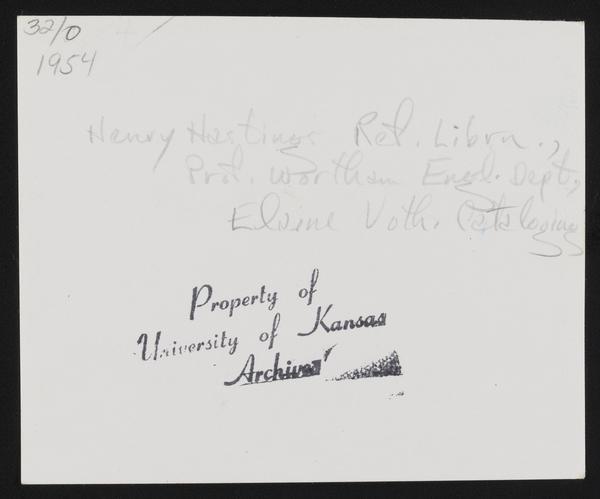 32/0
1954
Henry Hastings Ref. Librn.,
Prof. Wortham Engl. Dept.,
Elaine Voth. Cataloging
Property of
University of Kansas
Archives